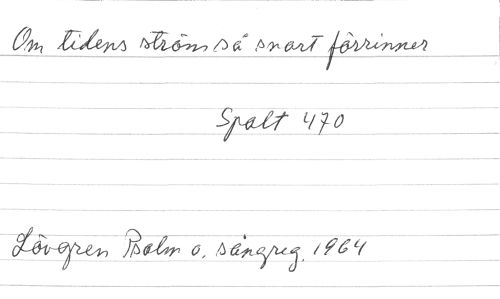 Om tidens ström så snart förrinner
Spalt 470
Lövgren Psalm o. sångreg. 1964